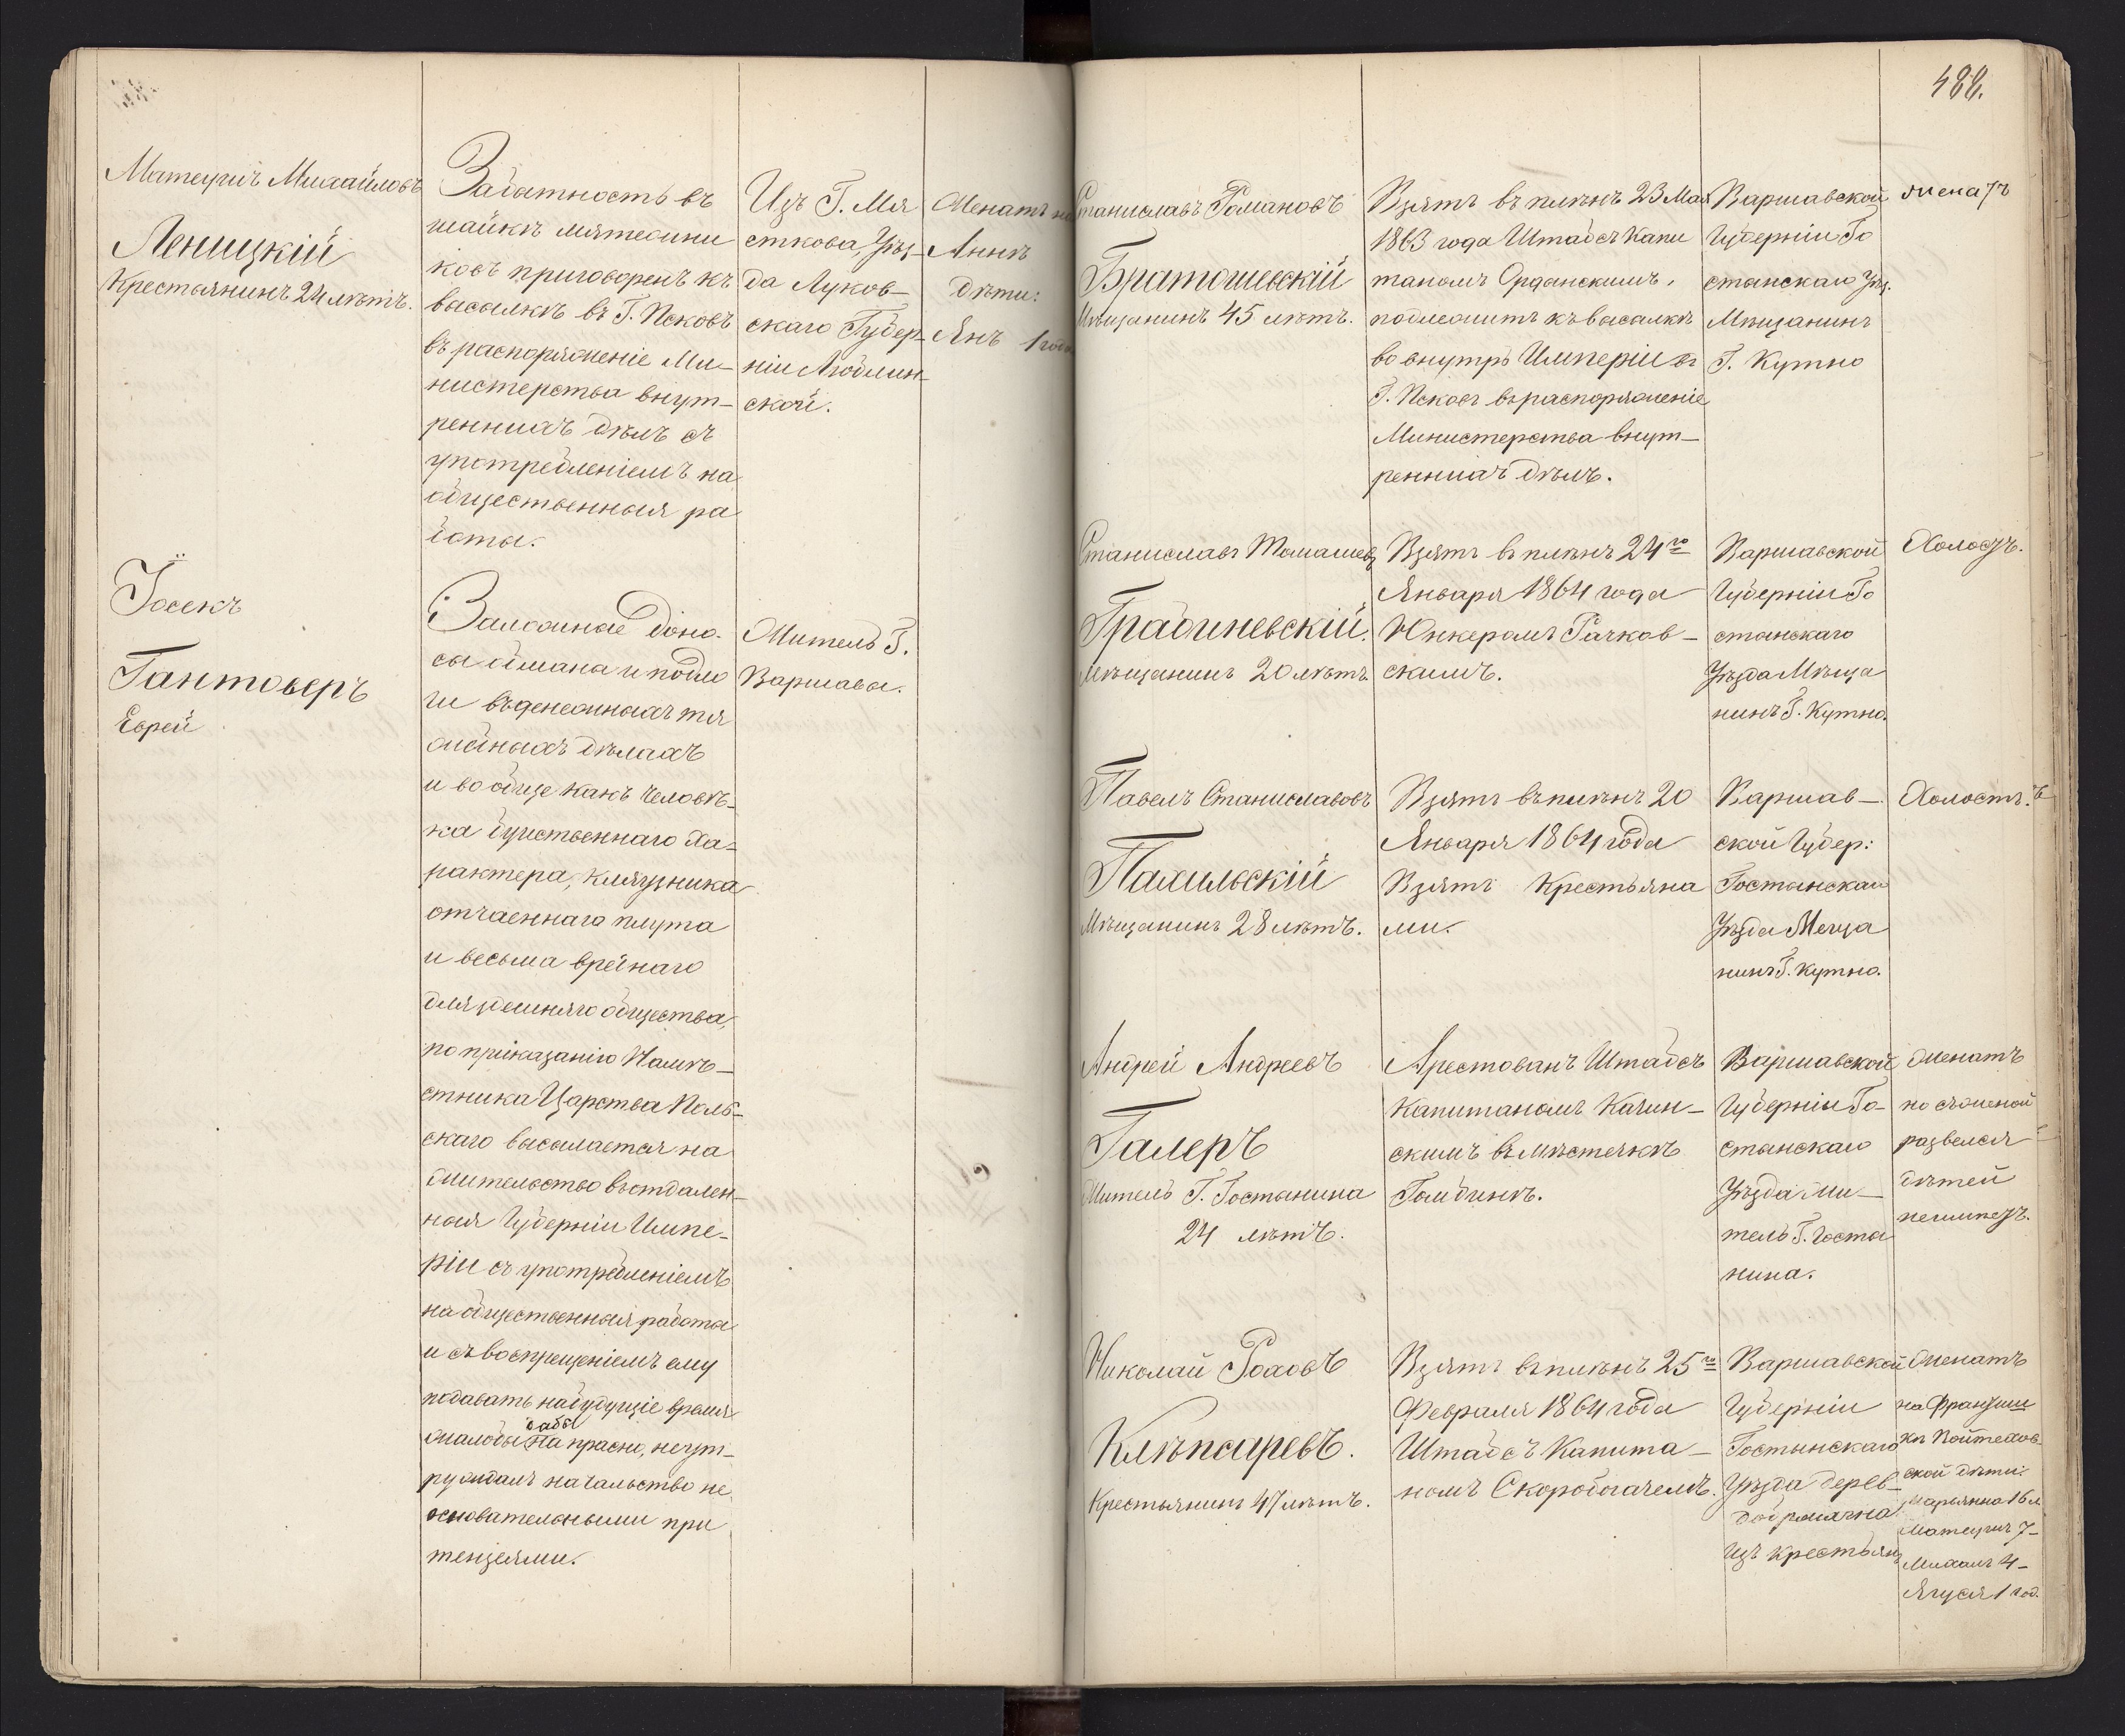 Матеушъ Михайловъ
Леницкій
Крестьянинъ 24 лѣтъ.
Забытность въ
шайкѣ мятежни
ковъ приговоренъ къ
высылкѣ въ Г. Псковъ
въ распоряженіе Ми-
нистерства внут-
реннихъ дѣлъ съ
употребленіемъ на
общественныя ра
боты.
Изъ Г. Мя
сткова, Уѣз-
да Луков-
скаго Губер-
ніи Люблин-
ской.
Женатъ на
Аннѣ
дѣти:
Янъ 1 годъ
Іосекъ
Гантоверъ
Еврей
Заложные доно
сы обманы и подло
ги въ денежныхъ тя
жебныхъ дѣлахъ
и вообще какъ человѣ-
ка буйственнаго ха-
рактера, кляузника
отчаеннаго плута
и весьма вреднаго
для здешняго общества,
по приказанію Намѣ-
стника Царства Поль-
скаго высылается на
жительство въ отдален-
ныя Губерніи Импе-
ріи съ употребленіемъ
на общественныя работы
и съ воспрещеніемъ ему
подавать на будущіе время
жалобы дабы напрасно, неут-
руждалъ начальство не
основательными при
тензеями.
Житель Г.
Варшавы.
488.
Станиславъ Романовъ
Братошевскій
Мѣщанинъ 45 лѣтъ.
Взятъ въ плѣнъ 23 Мая
1863 года Штабсъ Капи
таномъ Орданскимъ,
подлежитъ къ высылкѣ
во внутрь Имперіи въ
Г. Псковъ въ распоряженіе
Министерства внут-
реннихъ дѣлъ.
Варшавской
Губерніи Го
стынскаго Уѣз.
Мѣщанинъ
Г. Кутно
женатъ
Станиславъ Томашевъ
Градиневскій.
Мѣщанинъ 20 лѣтъ
Взятъ въ плѣнъ 24го
Января 1864 года
Юнкеромъ Рачков-
скимъ.
Варшавской
Губерніи Го
стынскаго
Уѣзда Мѣща
нинъ Г. Кутно.
Холостъ.
Павелъ Станиславовъ
Пахильскій
Мѣщанинъ 28 лѣтъ.
Взятъ въ плѣнъ 20
Января 1864 года
Взятъ Крестьяна
ми.
Варшав-
ской Губер:
Гостынскаго
Уѣзда Меща
нинъ Г. Кутно.
Холостъ.
Андрей Андреевъ
Галеръ
Житель Г. Гостынина
24 лѣтъ.
Арестованъ Штабсъ
Капитаномъ Качин-
скимъ въ мѣстечкѣ
Гомбинѣ.
Варшавской
Губерніи Го-
стынскаго
Уѣзда жи-
тель Г. Госты
нина.
Женатъ
но съ женой
развелся
дѣтей
неимѣетъ.
Николай Роховъ
Клѣпсаревъ.
Крестьянинъ 47 лѣтъ.
Взятъ въ плѣнъ 25го
Февраля 1864 года
Штабсъ Капита-
номъ Скоробогачемъ.
Варшавской
Губерніи
Гостынскаго
Уѣзда дерев-
изъ крестьянъ
Женатъ
на Францише
кѣ Войтехов-
ской дѣти:
Марьянна 16 л.
Матеушъ 7-
Михалъ 4-
Ягуся 1 год.